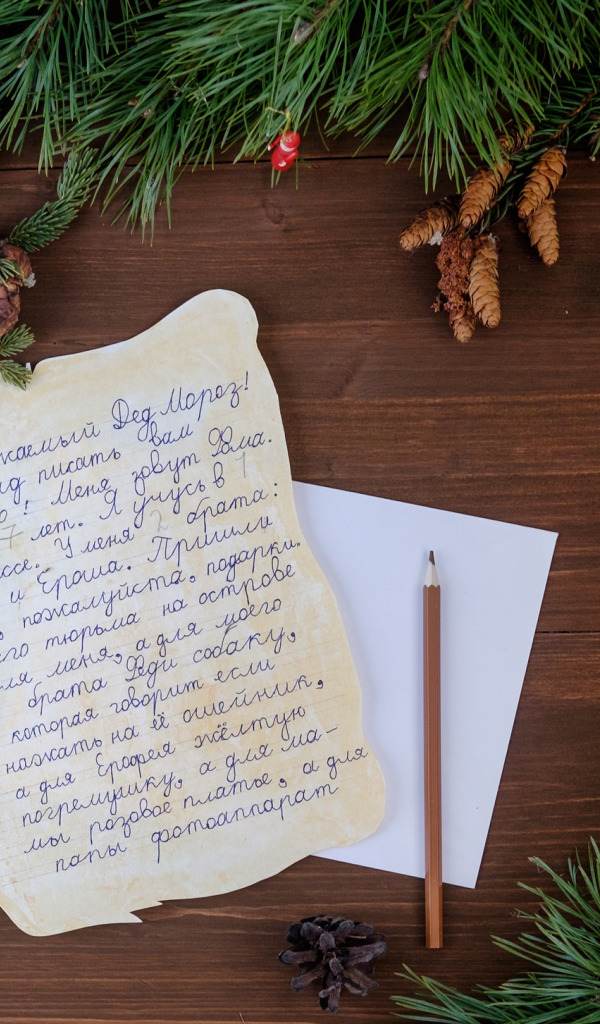 жаемый Дед Мороз!
ад писать вам
о! Меня зовут Фома.
7 лет. Я учусь в 1
ссе. У меня 2 брата:
и Ероша. Пришли
, пожалуйста, подарки.
его тюрьма на острове
ля меня, а для моего
брата Феди собаку,
которая говорит если
нажать на её ошейник,
а для Ерофея жёлтую
погремушку, а для ма-
мы розовое платье, а для
папы фотоаппарат